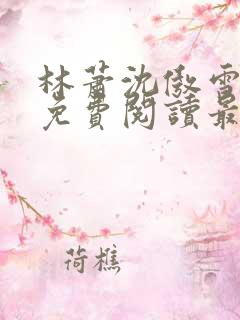 林蕭沈傲雪
免費閱讀最
荷樵